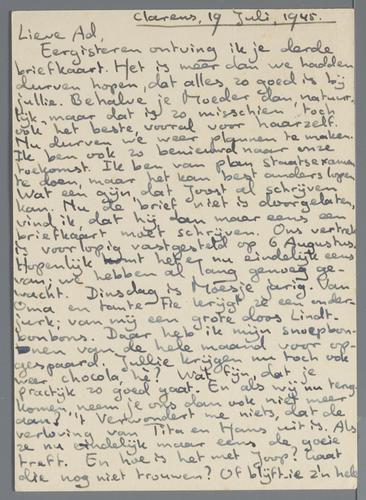 Clarens, 19 Juli, 1945.
Lieve Ad,
Eergisteren ontving ik je derde
briefkaart. Het is meer dan we hadden
durven hopen, dat alles zo goed is bij
jullie. Behalve je Moeder dan natuur-
lijk, maar dat is zo misschien toch
ook het beste, vooral voor haarzelf.
Nu durven we weer plannen te maken.
Ik ben ook zo benieuwd naar onze
toekomst. Ik ben van plan staatsexamen
te doen, maar het kan best anders lopen
Wat fijn, dat Joost al schrijven
kan. Nu de brief niet is doorgelaten,
vind ik, dat hij dan maar eens een
briefkaart moet schrijven. Ons vertrek
is voorlopig vastgesteld op 6 Augustus.
Hopenlijk komt het er nu eindelijk eens
van; we hebben al lang genoeg ge-
wacht. Dinsdag is Moesje jarig. Van
Oma en tante Fie krijgt ze een onder-
jurk; van mij een grote doos Lindt-
bonbons. Daar heb ik mijn snoepbon-
nen van de hele maand voor op-
gespaard. Jullie krijgen nu toch ook
weer chocola, hè? Wat fijn, dat je
practijk zo goed gaat. En als wij nu terug-
komen, neem je ons dan ook niet meer
aan? 't Verwondert me niets, dat de
verloving van Tita en Hans uit is. Als
ze nu eindelijk maar eens de goeie
treft. En hoe is het met Joop? Gaat
die nog niet trouwen? Of blijft ie z'n hele